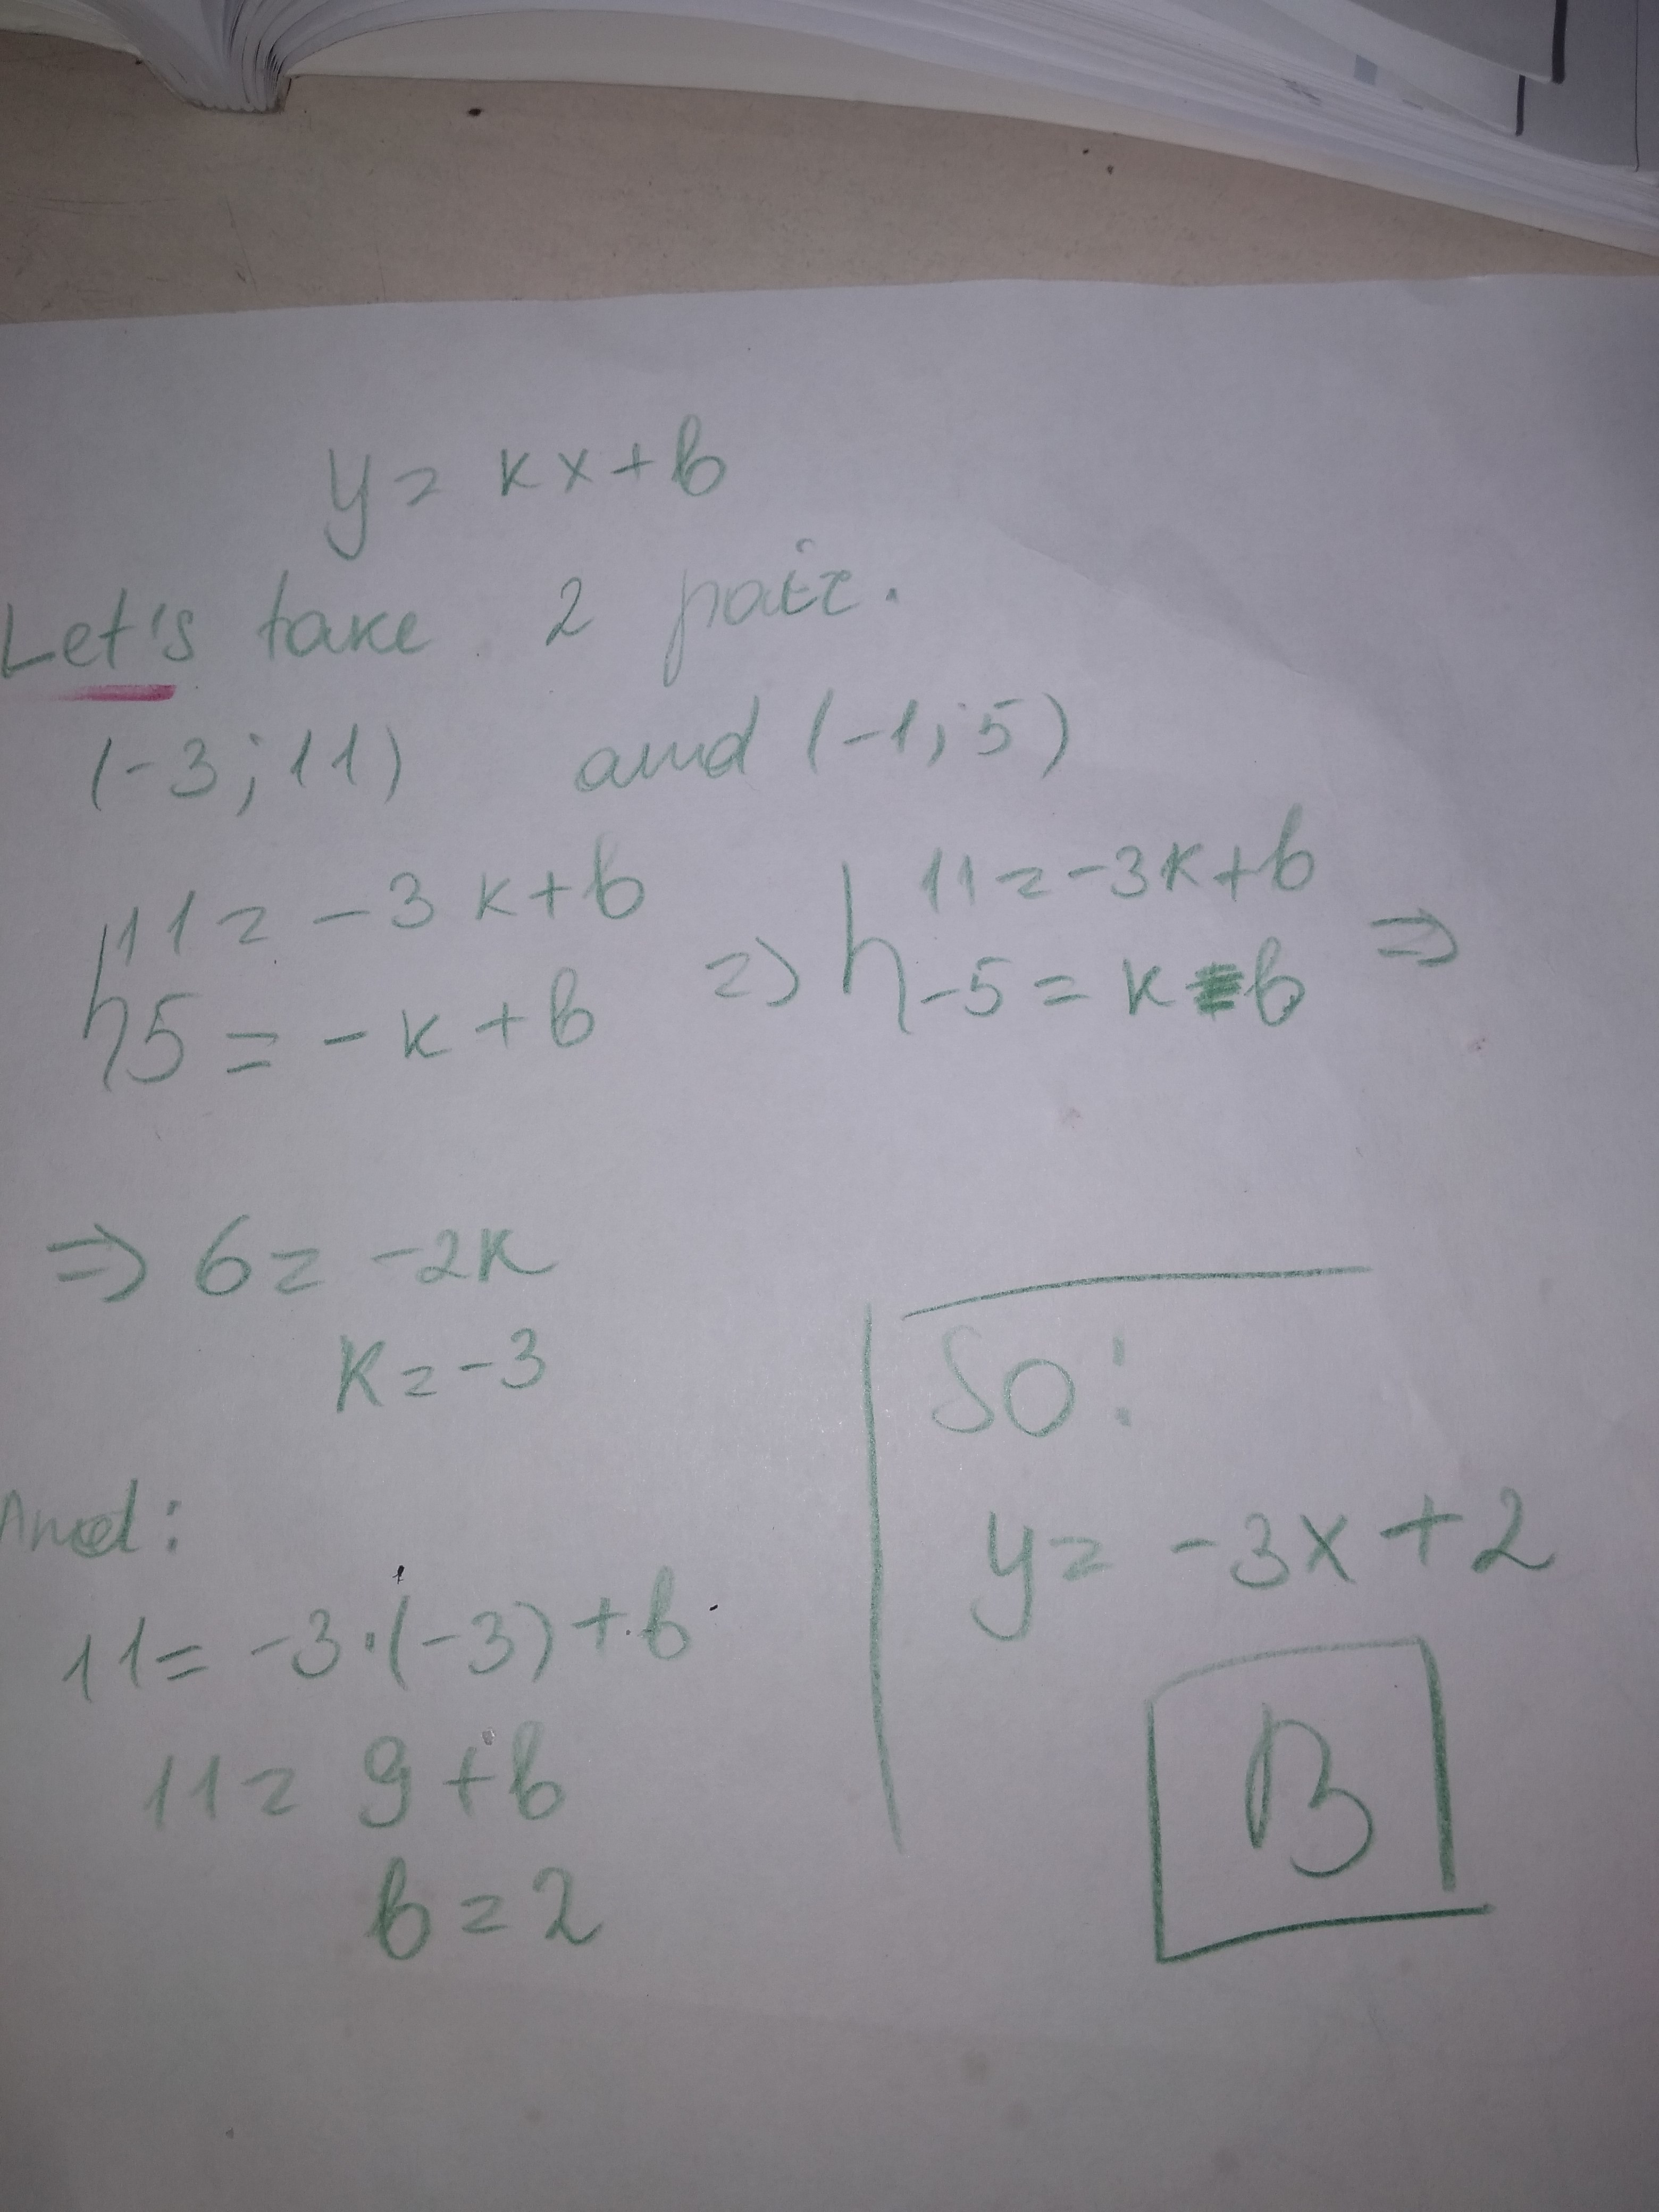 y = kx + b
Let's take 2 pair.
(-3; 11) and (-1; 5)
{ 11 = -3k + b => { 11 = -3k + b =>
{ 5 = -k + b { -5 = k - b
=> 6 = -2k
k = -3
And:
11 = -3·(-3) + b
11 = 9 + b
b = 2
So:
y = -3x + 2
B